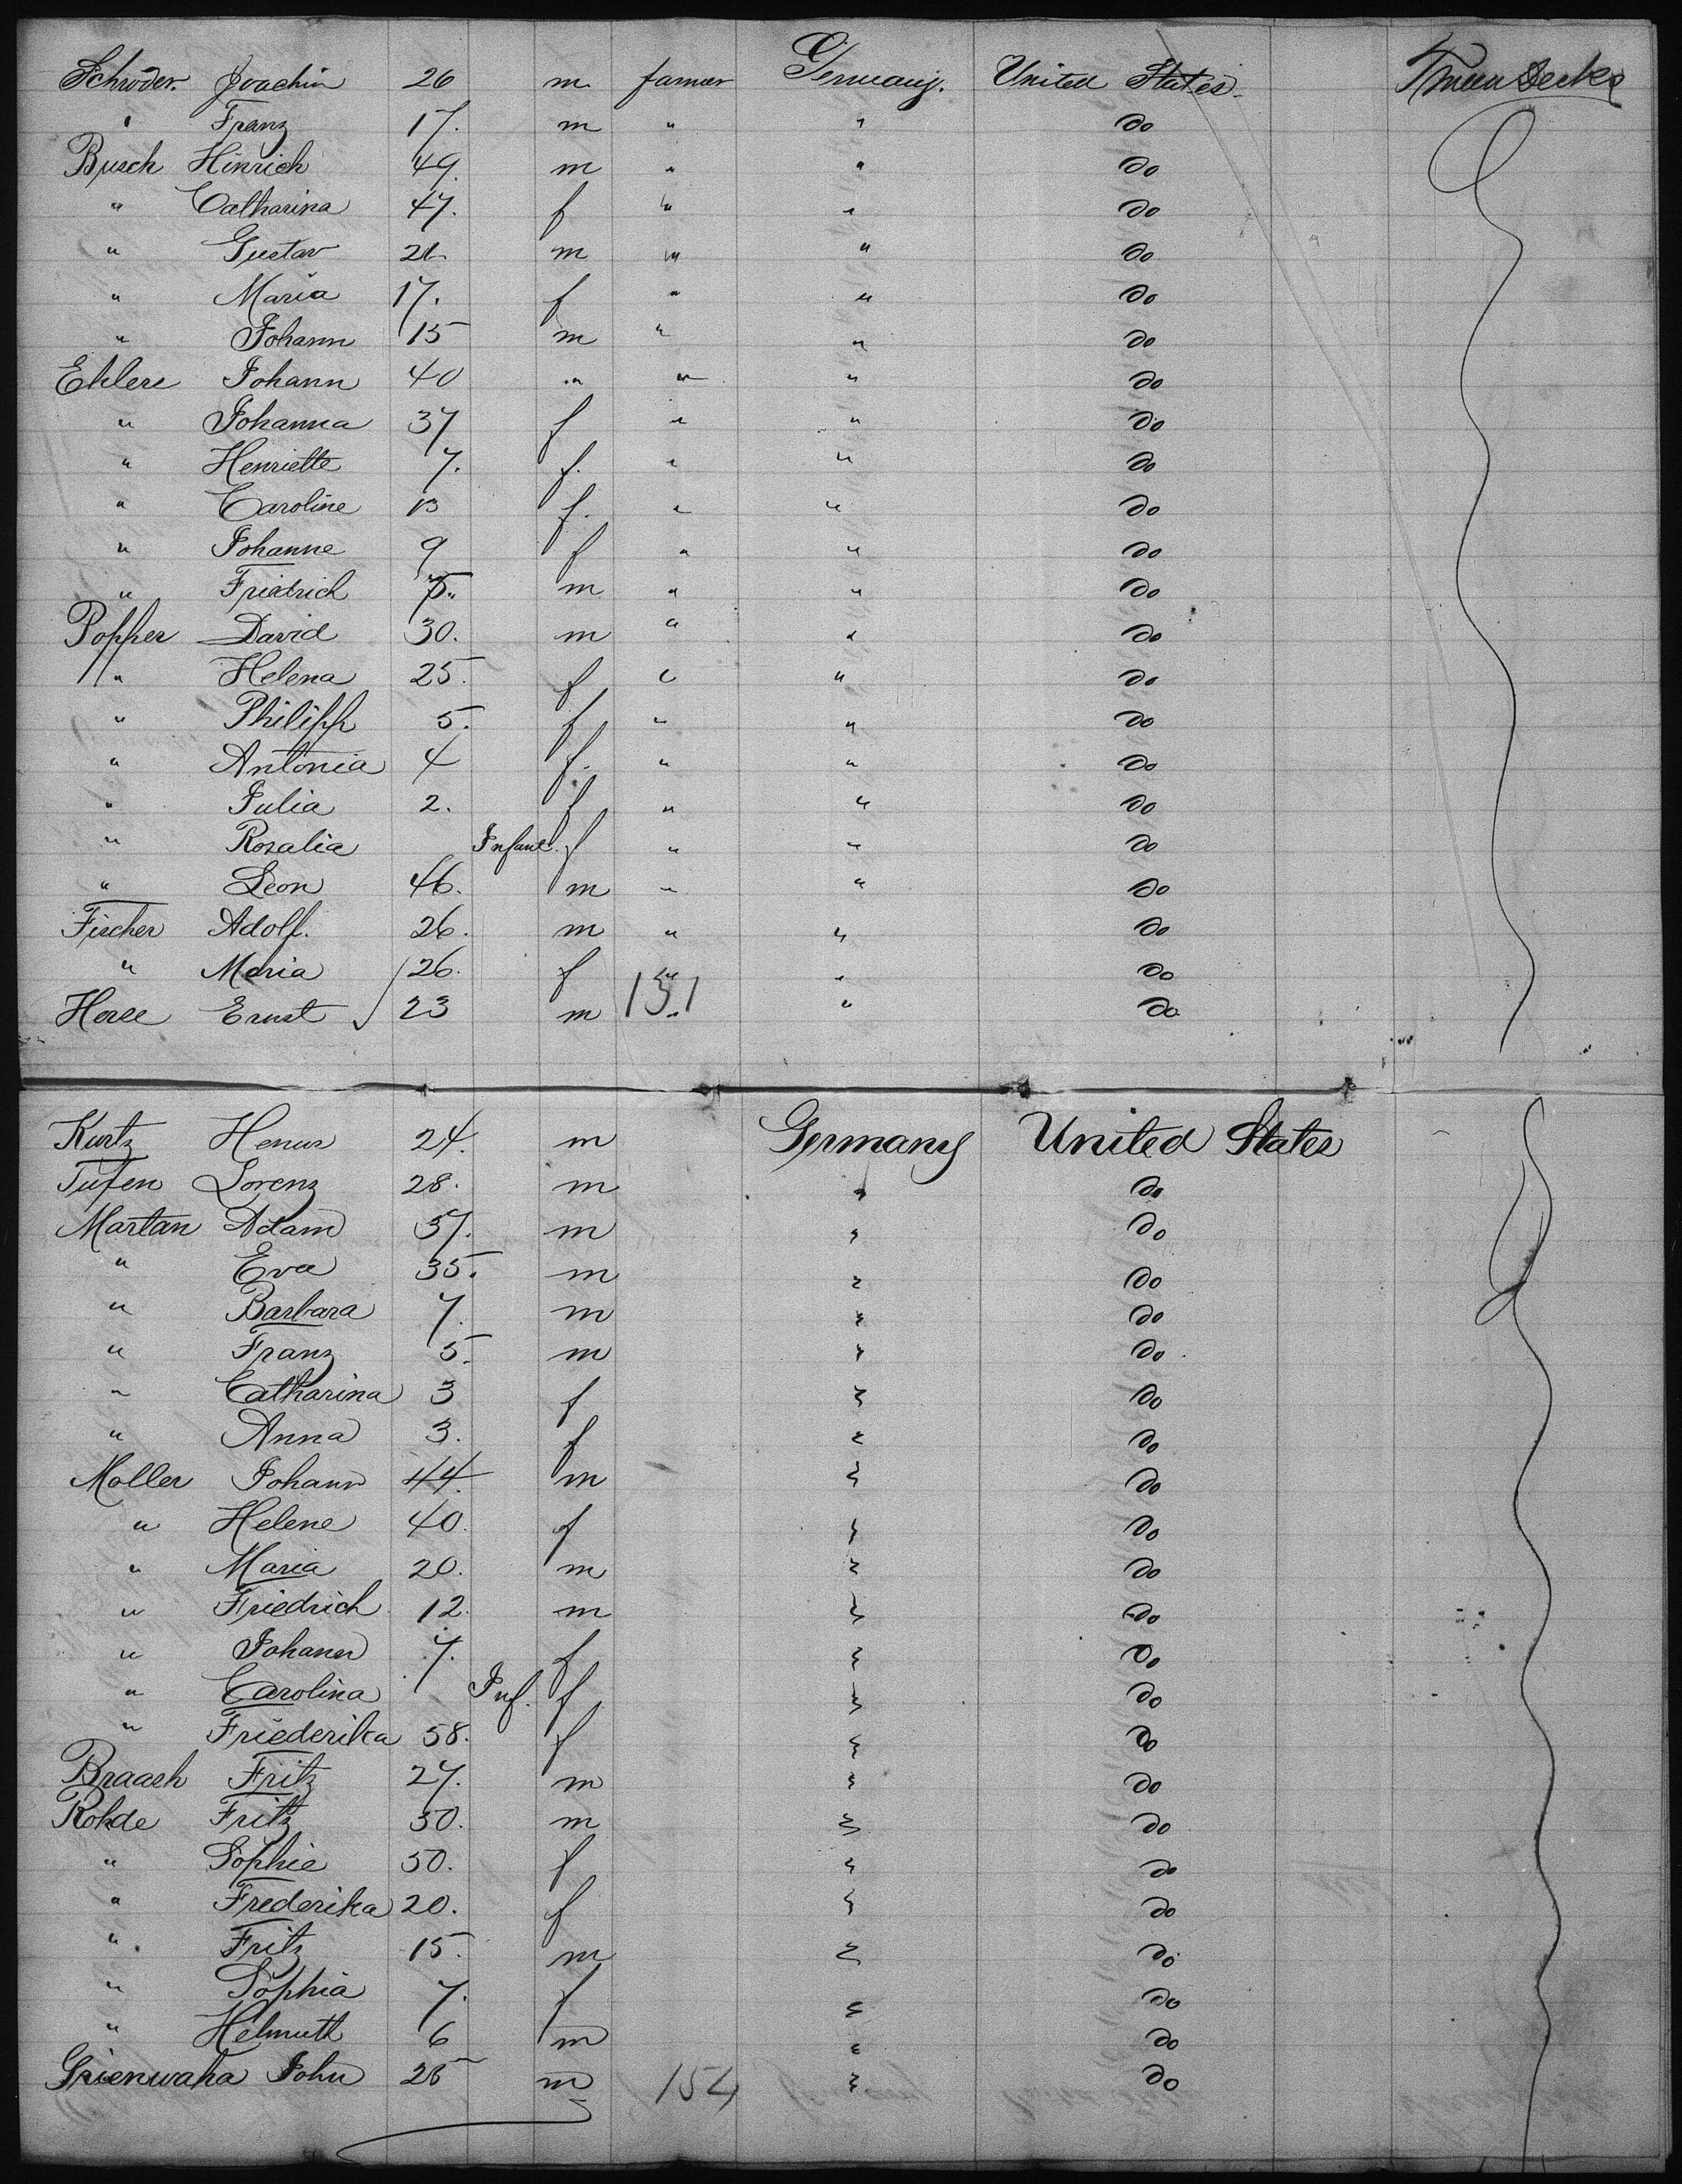 Schroder Joachin 26 m farmer Germany. United States Tween Decks
" Franz 17. m " " do
Busch Hinrich 49. m " " do
" Catharina 47. f " " do
" Gustav 21 m " " do
" Maria 17. f " " do
" Johann 15 m " " do
Ehlers Johann 40 " " " do
" Johanna 37 f " " do
" Henriette 7. f. " " do
" Caroline 13 f. " " do
" Johanne 9 f " " do
" Friedrich m " " do
Popper David 30. m " " do
" Helena 25. f " " do
" Philipp 5. f " " do
" Antonia 4 f. " " do
" Julia 2. f " " do
" Rosalia Infant. f " " do
" Leon 46. m " " do
Fischer Adolf. 26. m " " do
" Maria 26. f " " do
Ernst 23 m 151 " do
Kurtz 24. m Germany United States
Lorenz 28. m " do
Martan Adam 37. m " do
" Eva 35. m " do
" Barbara 7. m " do
" Franz 5. m " do
" Catharina 3 f " do
" Anna 3. f " do
Moller Johann 44. m " do
" Helene 40. f " do
" Maria 20. m " do
" Friedrich 12. m " do
" Johann 7. f " do
" Carolina Inf. f " do
" Friederika 58. f " do
Braash Fritz 27. m " do
Rohde Fritz 50. m " do
" Sophie 50. f " do
" Frederika 20. f " do
" Fritz 15. m " do
" Sophia 7. f " do
" Helmuth 6 m " do
Grienwaha John 25 m 154 " do